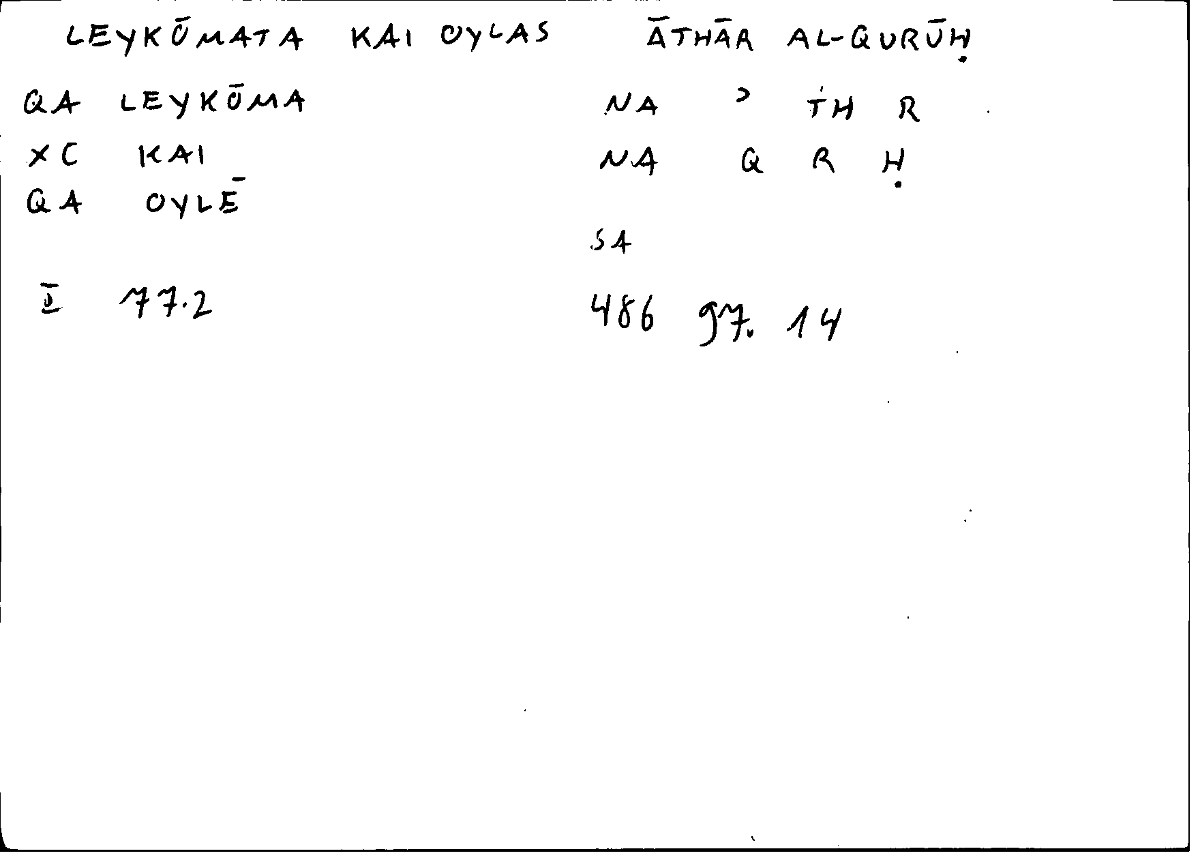 LEYKŌMATA KAI OYLAS ĀTHĀR AL-QURŪḤ
QA LEYKŌMA NA ʾ TH R
XC KAI NA Q R Ḥ
QA OYLĒ
SA
I 77.2 486 97. 14